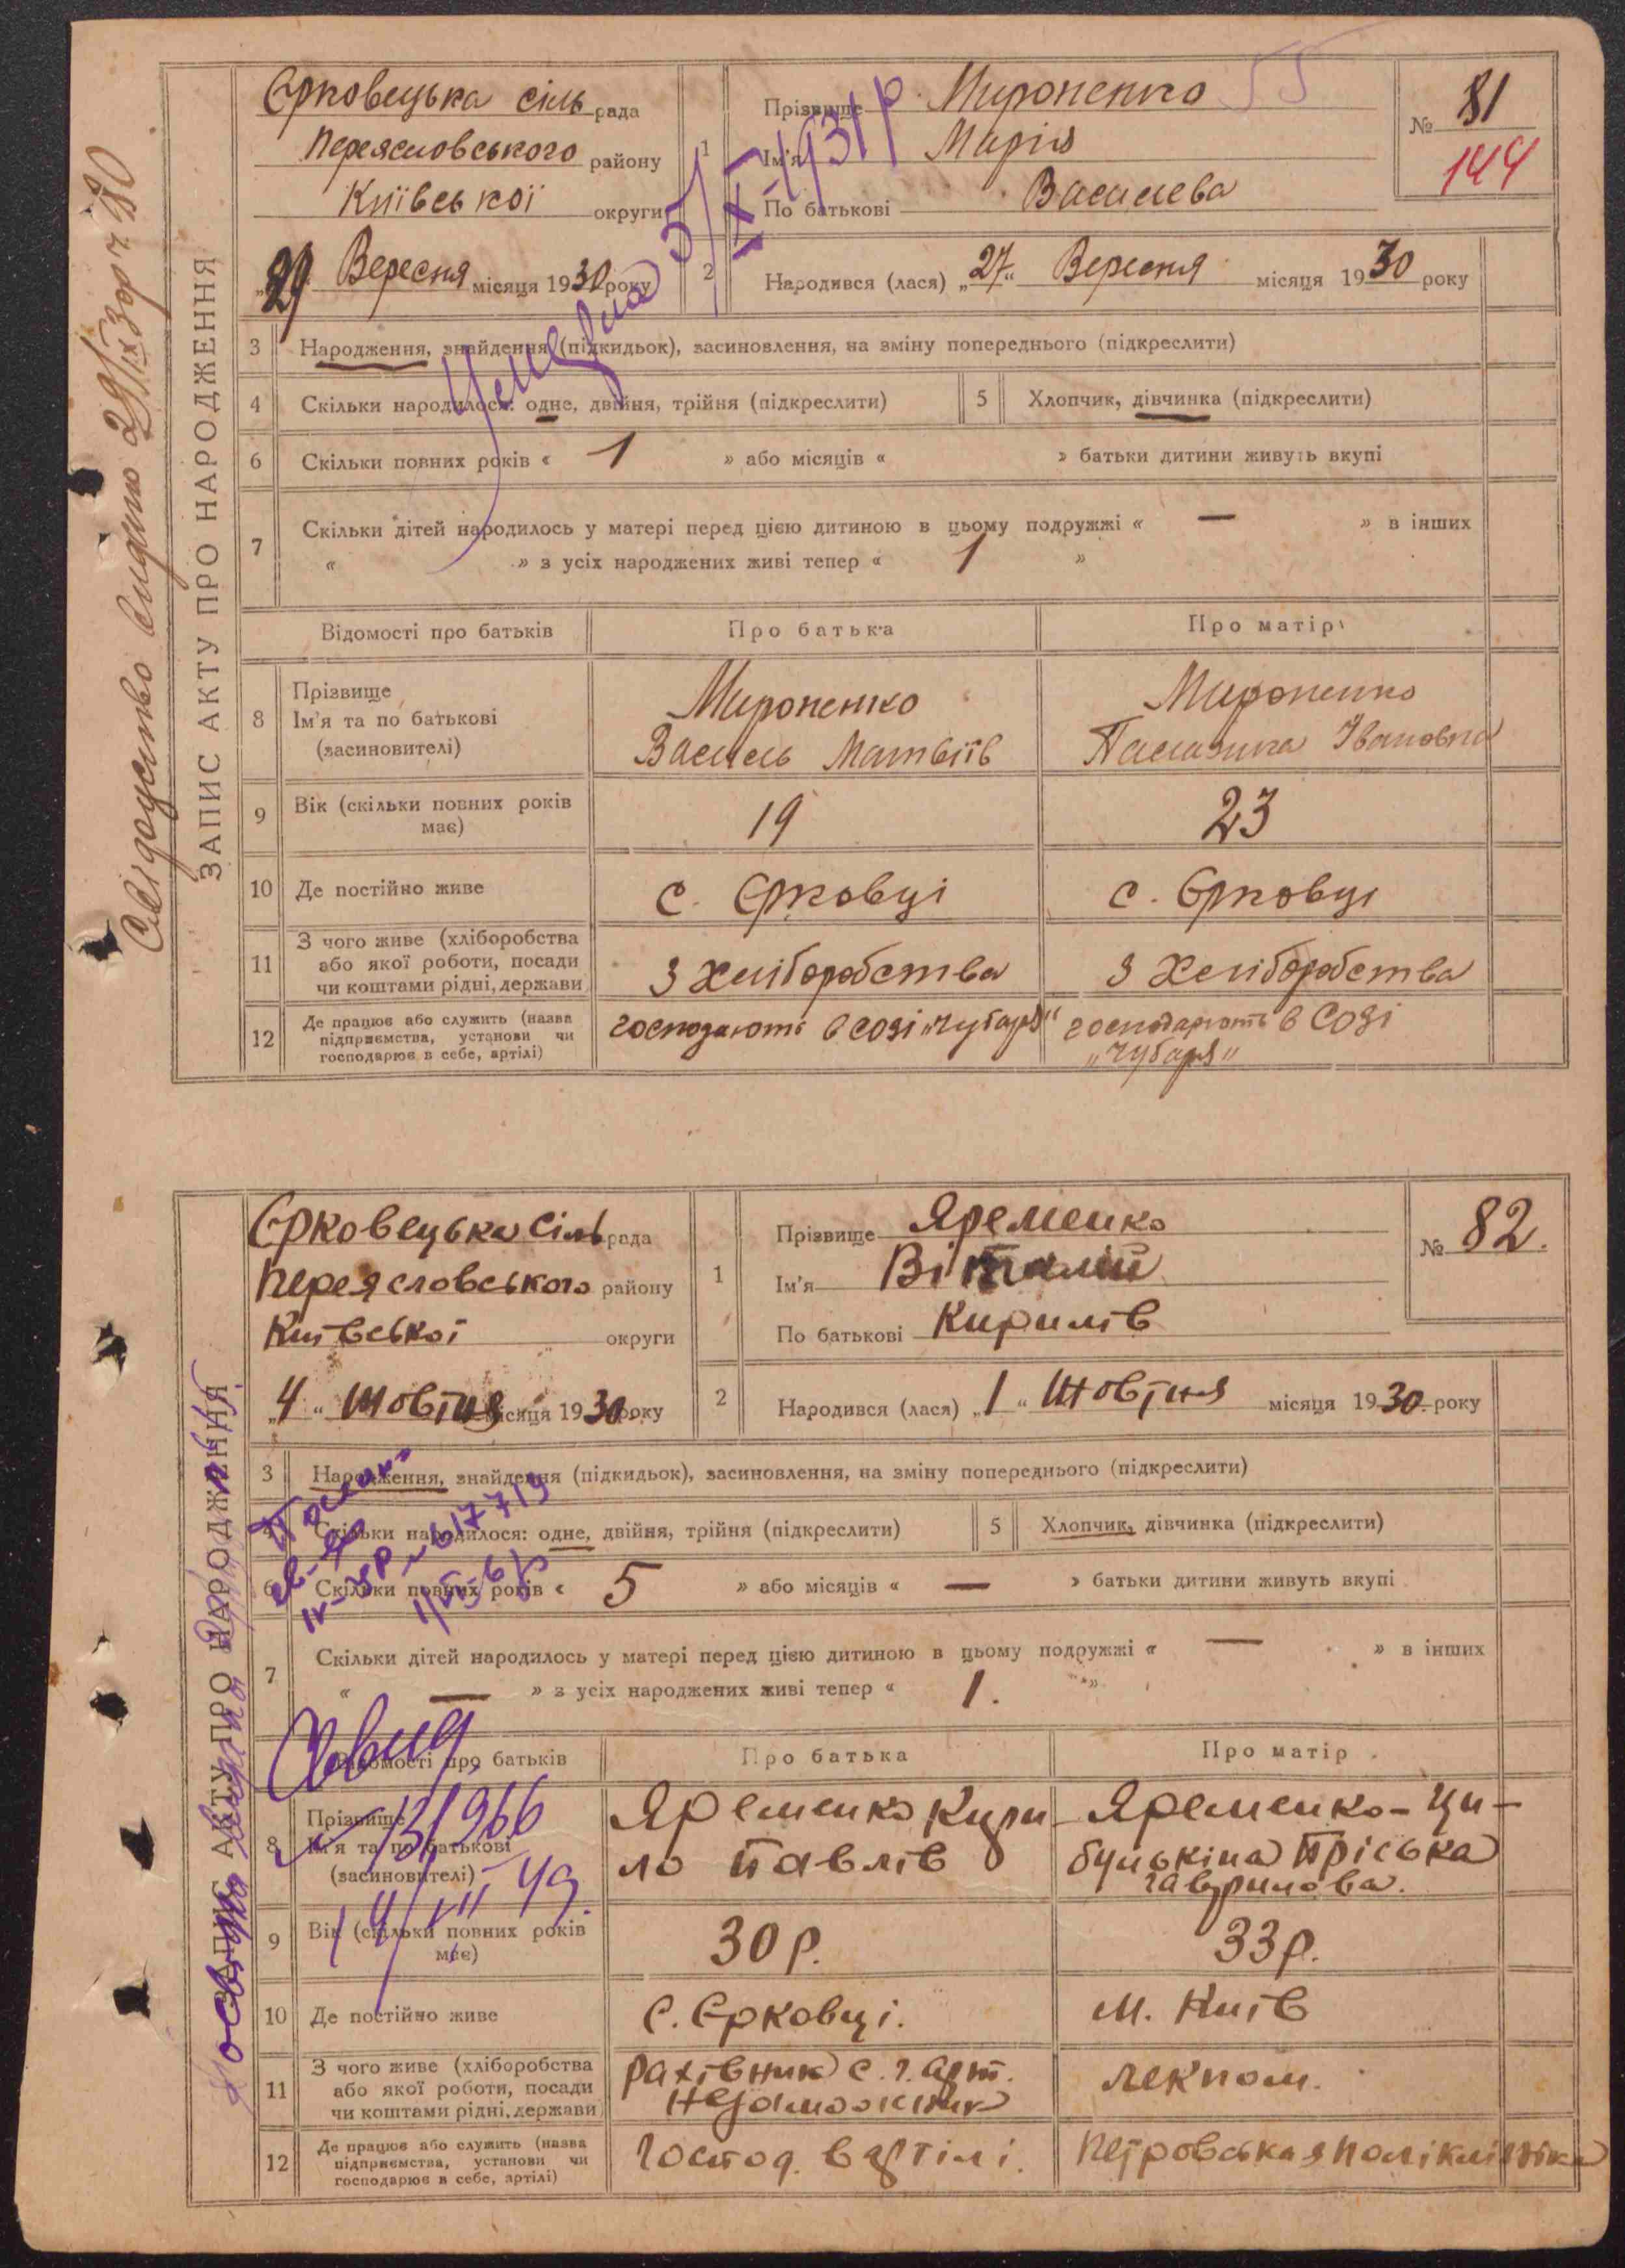 Свідоцтво видано 29/ІХ 30р ч 80
ЗАПИС АКТУ ПРО НАРОДЖЕННЯ
Єрковецька сіль рада
Переясловського району
Київської округи
„29“ Вересня місяця 1930 року
1 Прізвище Мироненко
Ім'я Марія
По батькові Василева
№ 81
144
55
2 Народився (лася) „27“ Вересня місяця 1930 року
Померла 5/ІХ-1931 р
3 Народження, знайдення (підкидьок), засиновлення, на зміну попереднього (підкреслити)
4 Скільки народилося: одне, двійня, трійня (підкреслити)
5 Хлопчик, дівчинка (підкреслити)
6 Скільки повних років « 1 » або місяців « » батьки дитини живуть вкупі
7 Скільки дітей народилось у матері перед цією дитиною в цьому подружжі « — » в інших
« » з усіх народжених живі тепер « 1 »
Відомості про батьків Про батька Про матір
8 Прізвище
Ім'я та по батькові
(засиновителі)
Мироненко
Василь Матвіїв
Мироненко
Палазика Івановна
9 Вік (скільки повних років
має)
19
23
10 Де постійно живе
с. Єрковці
с. Єрковці
11 З чого живе (хліборобства
або якої роботи, посади
чи коштами рідні, держави
З Хліборобства
З Хліборобства
12 Де працює або служить (назва
підприємства, установи чи
господарює в себе, артілі)
господають в созі „Чубаря“
господарють в Созі
„Чубаря“
ЗАПИС АКТУ ПРО НАРОДЖЕННЯ
Єрковецька сіль рада
Переясловського району
Київської округи
„4“ Жовтня місяця 1930 року
1 Прізвище Яременко
Ім'я Віталій
По батькові Кирилів
№ 82.
2 Народився (лася) „1“ Жовтня місяця 1930 року
3 Народження, знайдення (підкидьок), засиновлення, на зміну попереднього (підкреслити)
4 Скільки народилося: одне, двійня, трійня (підкреслити)
5 Хлопчик, дівчинка (підкреслити)
6 Скільки повних років « 5 » або місяців « — » батьки дитини живуть вкупі
7 Скільки дітей народилось у матері перед цією дитиною в цьому подружжі « — » в інших
« — » з усіх народжених живі тепер « 1. »
Відомості про батьків Про батька Про матір
8 Прізвище
Ім'я та по батькові
(засиновителі)
Яременко Кири
ло Павлів
Яременко-Ци-
булькіна Пріська
Гаврилова.
9 Вік (скільки повних років
має)
30 р.
33 р.
10 Де постійно живе
с. Єрковці.
м. Київ
11 З чого живе (хліборобства
або якої роботи, посади
чи коштами рідні, держави
рахівник с. г. арт.
Незаможник
лекпом.
12 Де працює або служить (назва
підприємства, установи чи
господарює в себе, артілі)
Господ. в артілі.
Петровська поліклініка